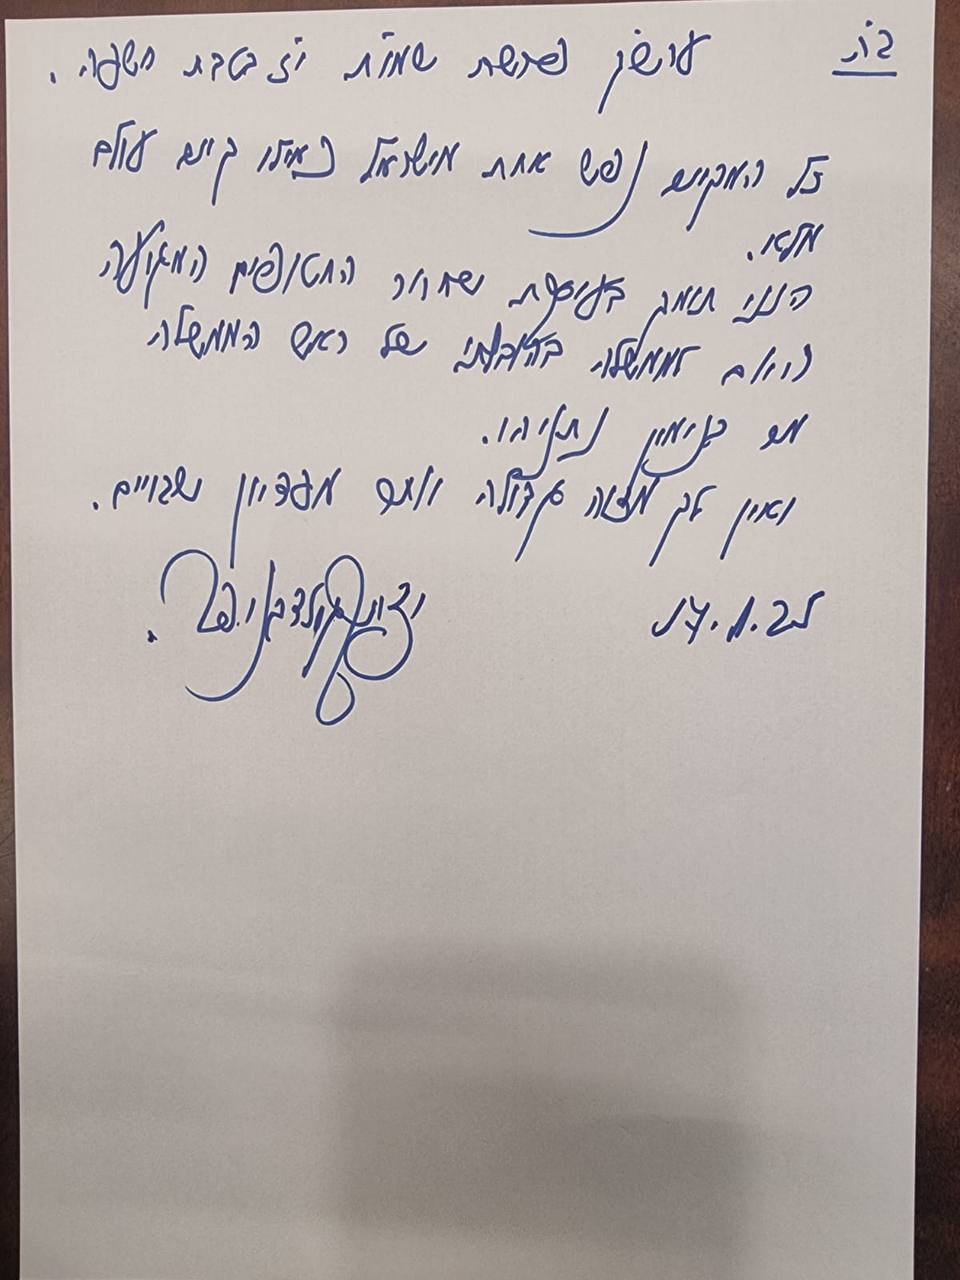 ב״ה
ערש״ק פרשת שמות י״ז בטבת תשפ״ה.
כל המקיים נפש אחת מישראל כאילו קיים עולם
מלא.
הנני תומך בעיסקת שחרור החטופים המגיעה
היום לממשלה בהובלתו של ראש הממשלה
מר בנימין נתניהו.
ואין לך מצוה גדולה יותר מפדיון שבויים.
17.1.25
יצחק גולדקנופף.